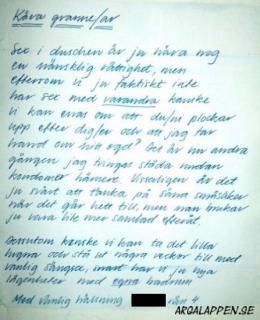 Kära granne/ar
Sex i duschen är ju nära nog
en mänsklig rättighet, men
eftersom vi ju faktiskt inte
har sex med varandra kanske
vi kan enas om att du/ni plockar
upp efter dig/er och att jag tar
hand om mitt eget? Det är nu andra
gången jag tvingas städa undan
kondomer härinne. Visserligen är det
ju svårt att tänka på såna småsaker
när det går hett till, men man brukar
ju vara lite mer samlad efteråt.
Dessutom kanske vi kan ta det lilla
lugna och stå ut några veckor till med
vanlig sängsex, snart har vi ju nya
lägenheter med egna badrum.
Med vänlig hälsning vån 4
ARGALAPPEN.SE